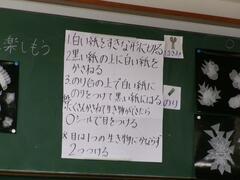 楽しもう
1.白い紙をすきな形に切る
2.黒い紙の上に白い紙を
かさねる
3.のり台の上で白い紙に
のりをつけて黒い紙にはる
のり
※たくさんかさねて生き物ができたら
○シールで目をつける
※目は1つの生き物にかならず
2つつける